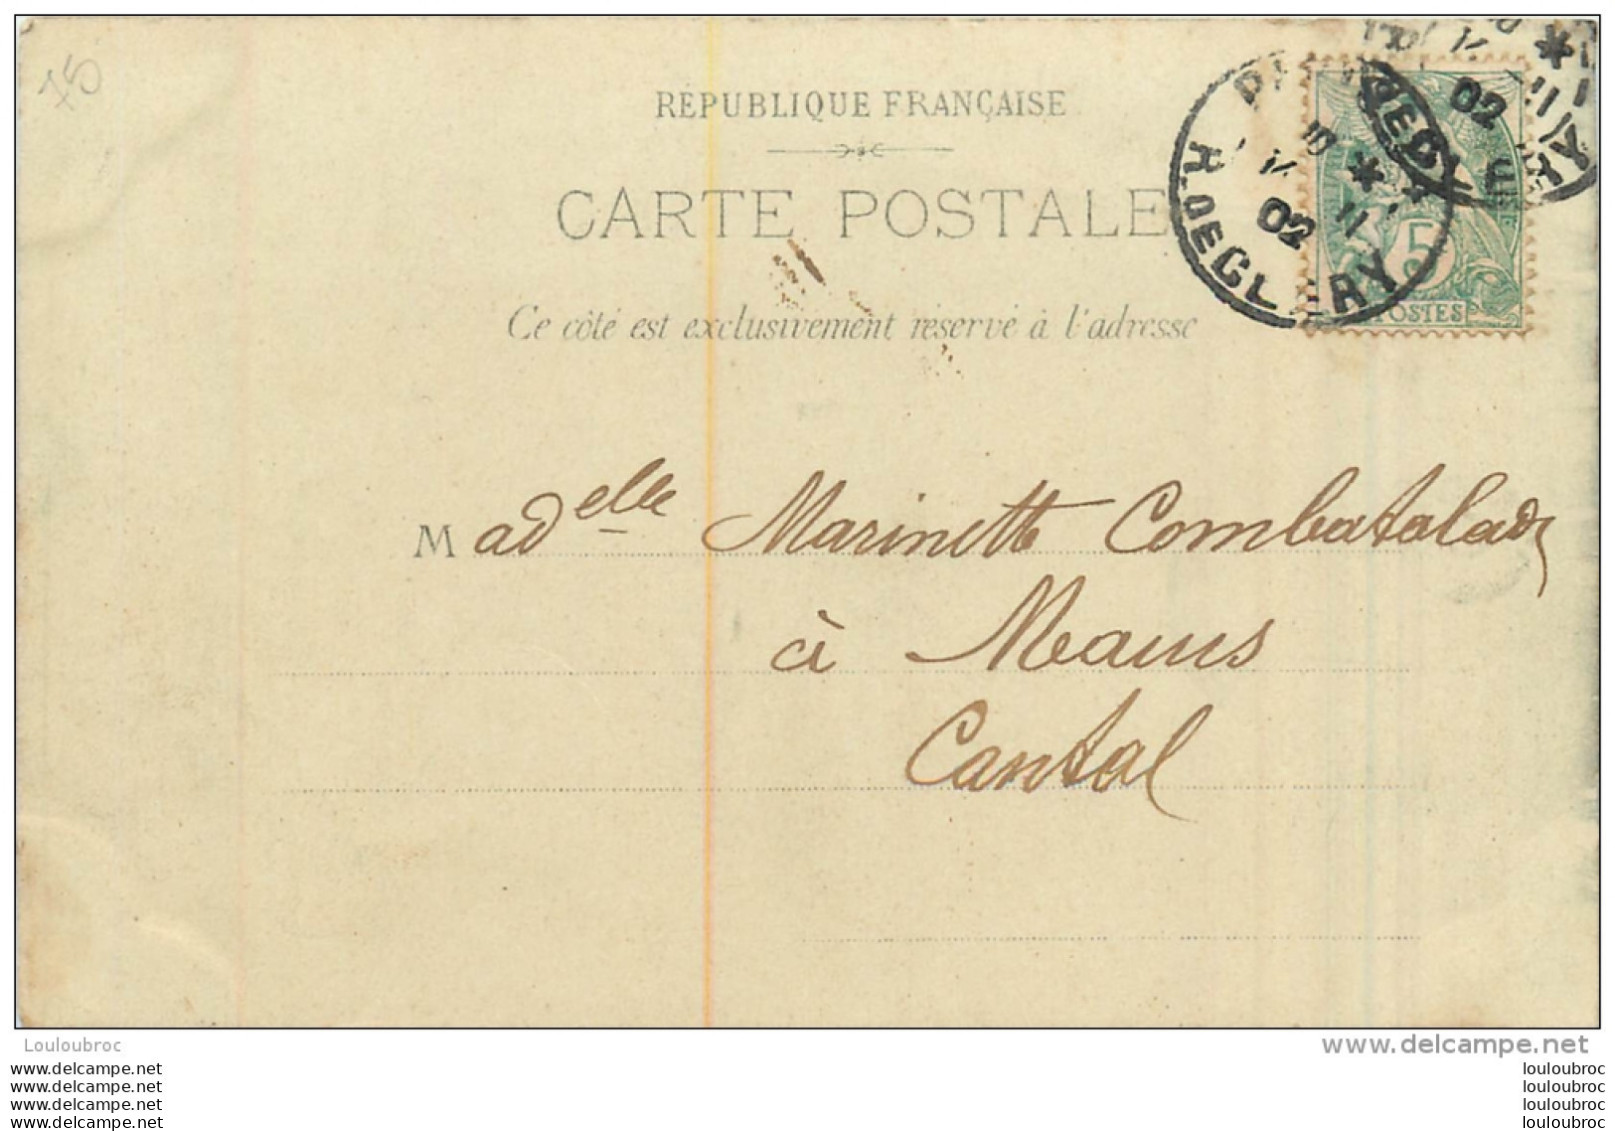 75
RÉPUBLIQUE FRANÇAISE
CARTE POSTALE
Ce côté est exclusivement réservé à l'adresse
5
POSTES
R. DE CL RY
02
11
R DE CL RY
02
11
Madelle Marinette Combatalade
à Maurs
Cantal
Louloubroc
www.delcampe.net
www.delcampe.net
www.delcampe.net
www.delcampe.net
www.delcampe.net
louloubroc
louloubroc
louloubroc
louloubroc